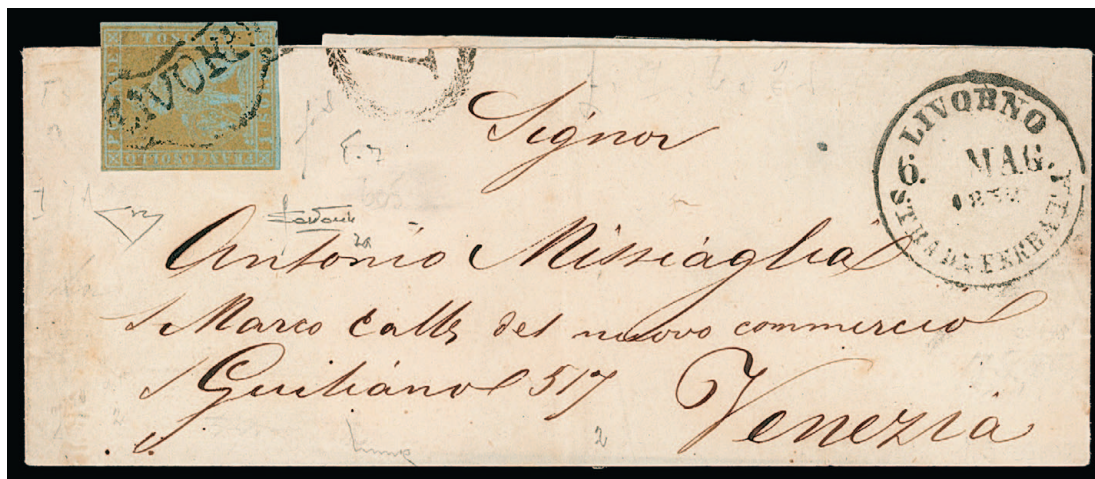 LIVOR
LIVORNO
6. MAG.
STRADA FERRATA
Signor
Antonio Missiaglia
S Marco Calle del nuovo commercio
S Guiliano 517
Venezia
2